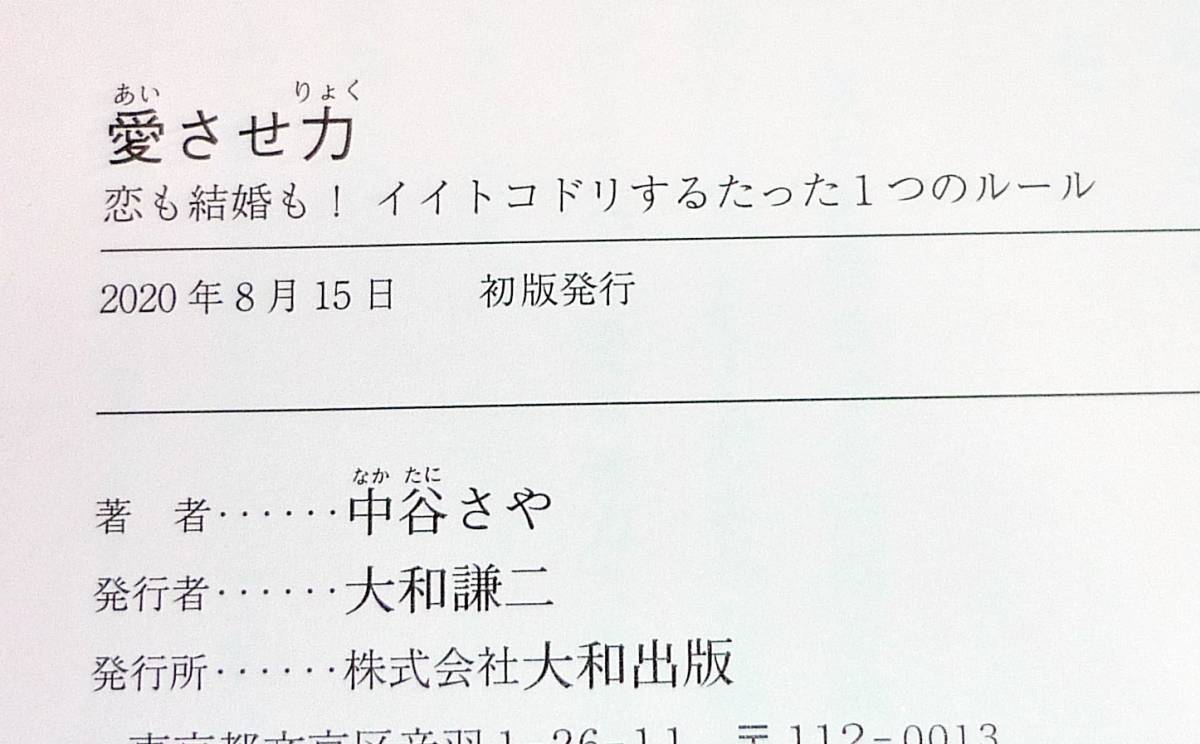 あい りょく
愛させ力
恋も結婚も！ イイトコドリするたった1つのルール
2020年8月15日 初版発行
なか たに
著 者‥‥‥中谷さや
発行者‥‥‥大和謙二
発行所‥‥‥株式会社大和出版
東京都文京区音羽1-26-11 〒112-0013